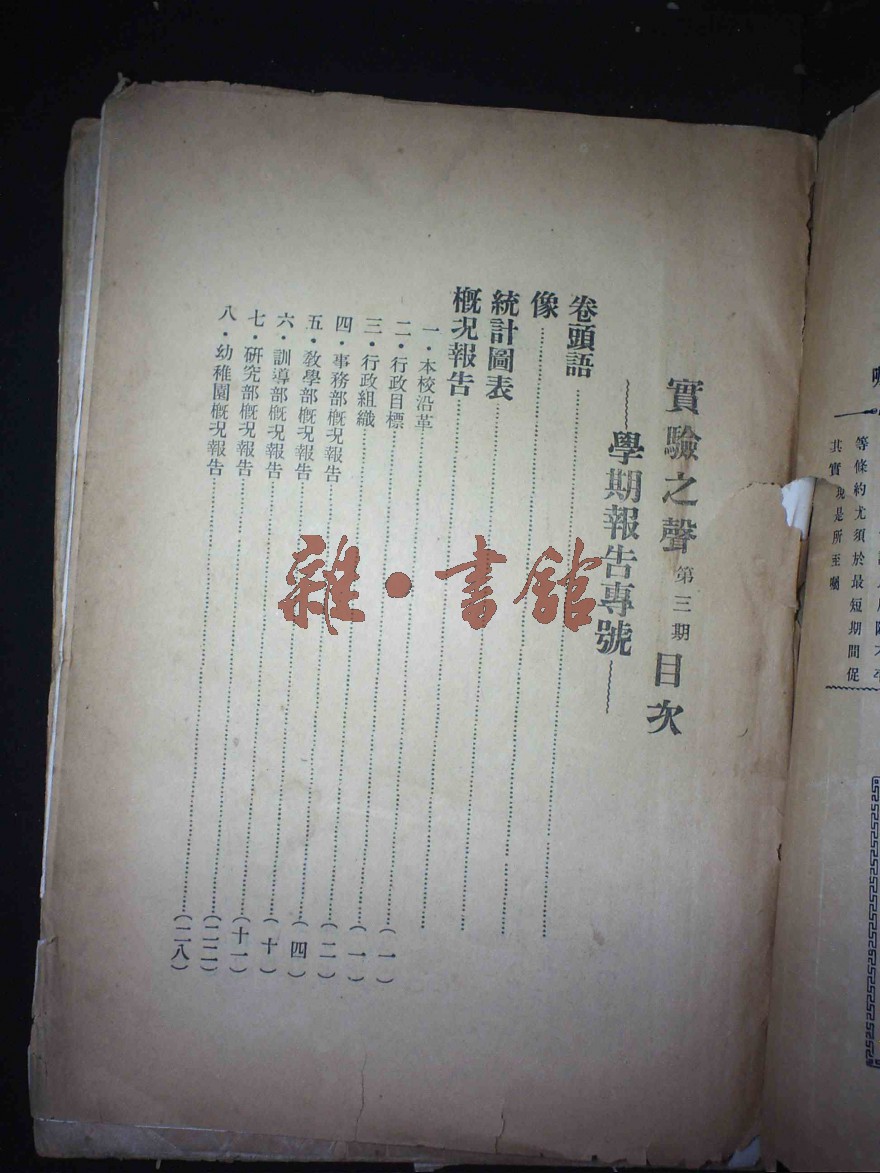 等條約尤須於最短期間促
其實現是所至囑
實驗之聲 第三期 目次
學期報告專號
卷頭語
像
統計圖表
概況報告
一・本校沿革(一)
二・行政目標(一)
三・行政組織(二)
四・事務部概況報告(四)
五・教學部概況報告(十)
六・訓導部概況報告(十一)
七・研究部概況報告(二二)
八・幼稚園概況報告(二八)
雜・書館